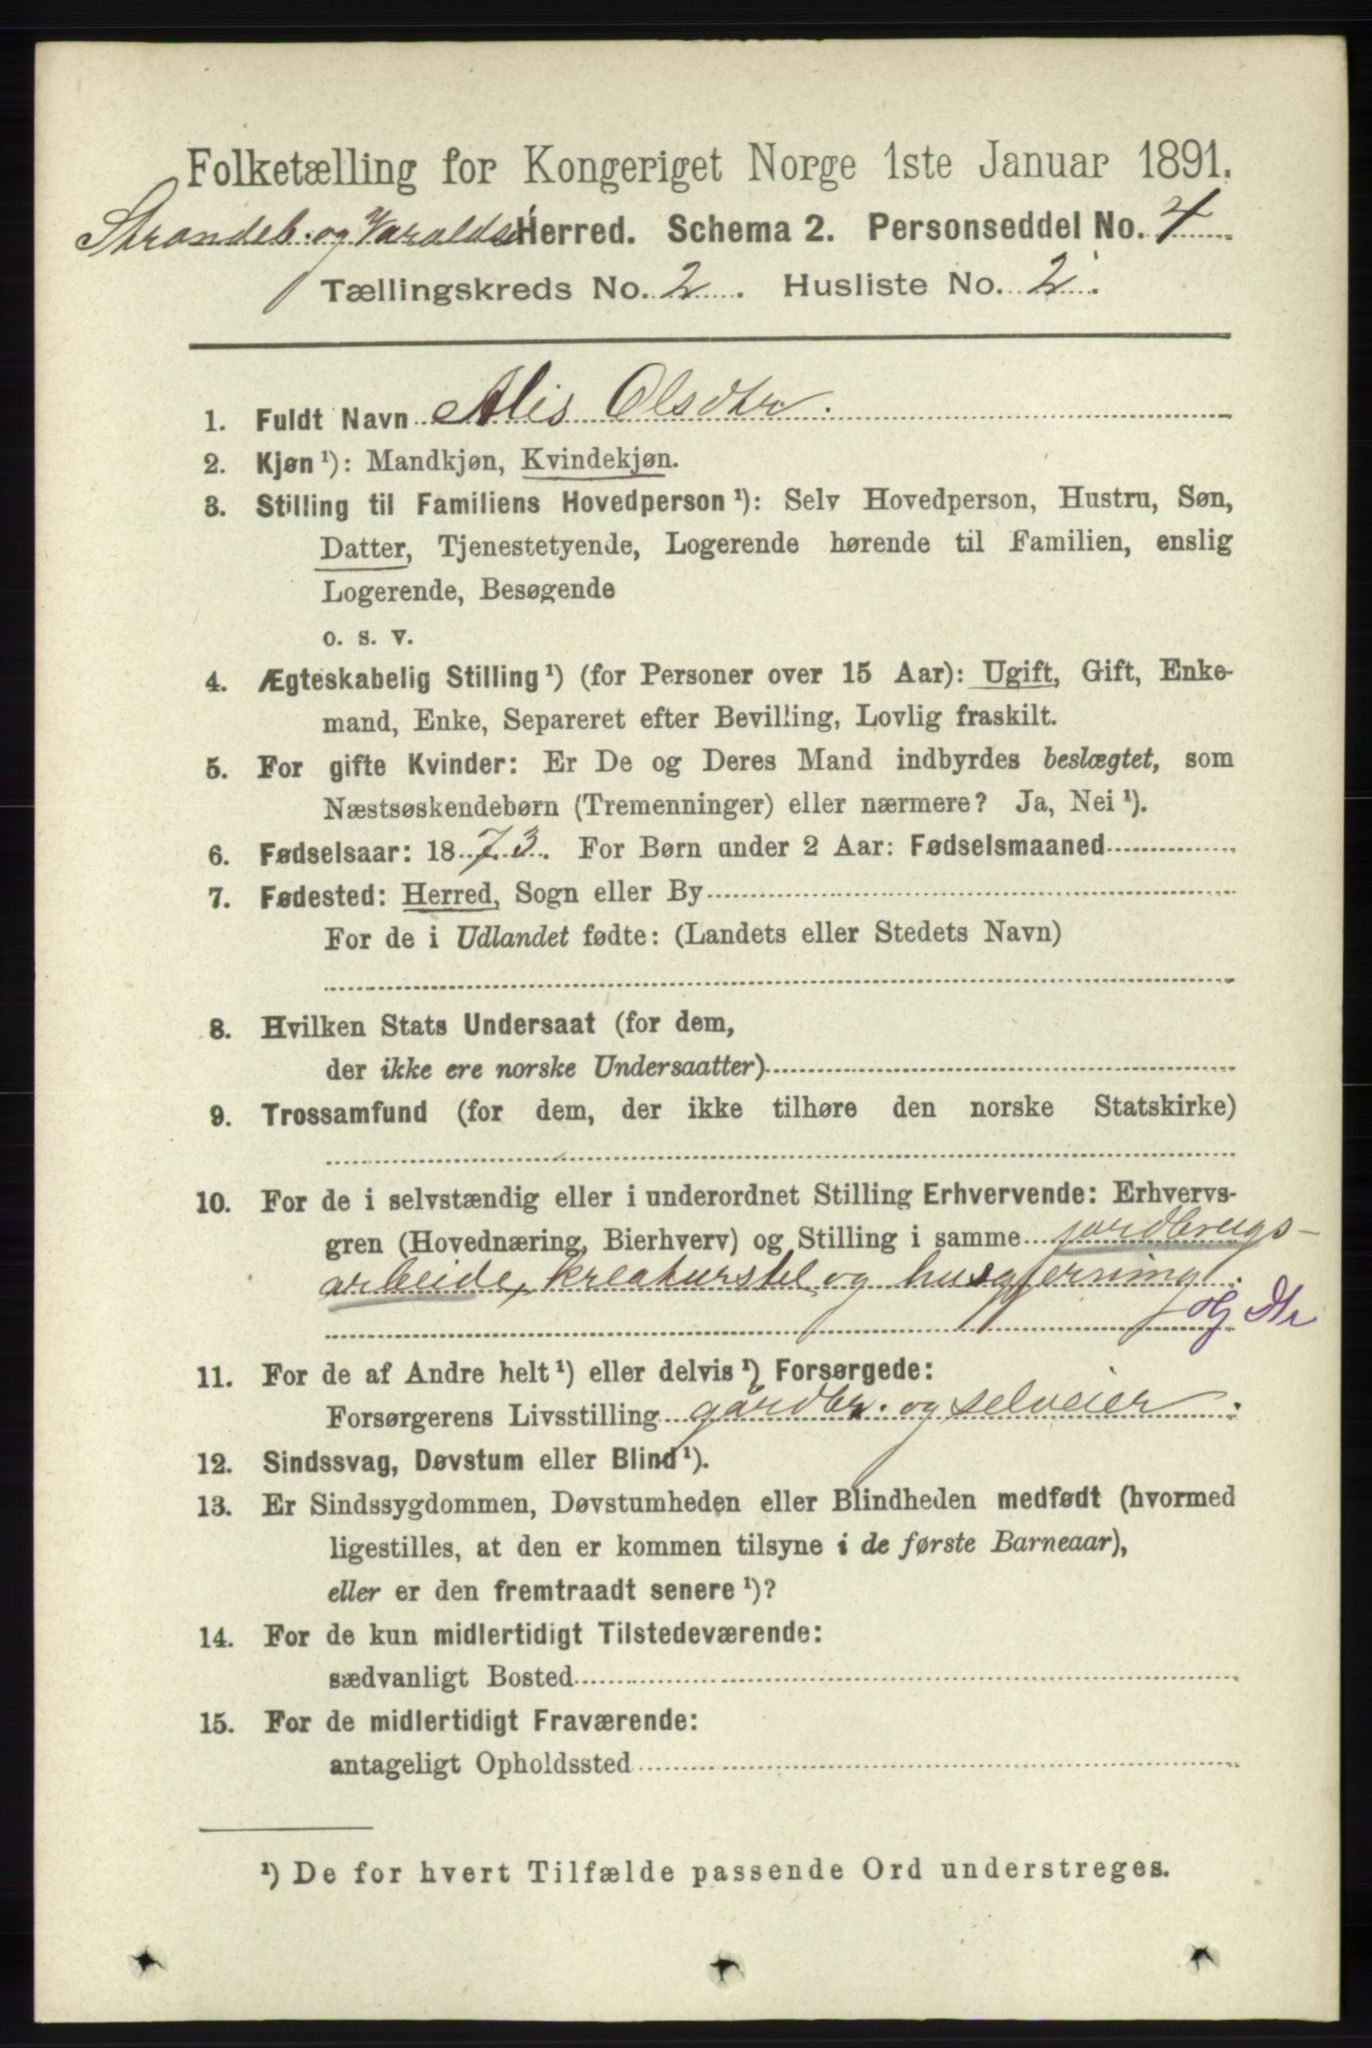 Folketælling for Kongeriget Norge 1ste Januar 1891.
Strandeb. og Varaldsø Herred. Schema 2. Personseddel No. 4
Tællingskreds No. 2. Husliste No. 2.
1. Fuldt Navn Alis Olsdtr.
2. Kjøn ¹): Mandkjøn, Kvindekjøn.
3. Stilling til Familiens Hovedperson ¹): Selv Hovedperson, Hustru, Søn,
Datter, Tjenestetyende, Logerende hørende til Familien, enslig
Logerende, Besøgende
o. s. v.
4. Ægteskabelig Stilling ¹) (for Personer over 15 Aar): Ugift, Gift, Enke-
mand, Enke, Separeret efter Bevilling, Lovlig fraskilt.
5. For gifte Kvinder: Er De og Deres Mand indbyrdes beslægtet, som
Næstsøskendebørn (Tremenninger) eller nærmere? Ja, Nei ¹).
6. Fødselsaar: 1873. For Børn under 2 Aar: Fødselsmaaned
7. Fødested: Herred, Sogn eller By
For de i Udlandet fødte: (Landets eller Stedets Navn)
8. Hvilken Stats Undersaat (for dem,
der ikke ere norske Undersaatter)
9. Trossamfund (for dem, der ikke tilhøre den norske Statskirke)
10. For de i selvstændig eller i underordnet Stilling Erhvervende: Erhvervs-
gren (Hovednæring, Bierhverv) og Stilling i samme jordbrugs-
arbeide, kreaturstel og husgjerning.
Gj Dtr
11. For de af Andre helt ¹) eller delvis ¹) Forsørgede:
Forsørgerens Livsstilling gårdbr. og selveier.
12. Sindssvag, Døvstum eller Blind ¹).
13. Er Sindssygdommen, Døvstumheden eller Blindheden medfødt (hvormed
ligestilles, at den er kommen tilsyne i de første Barneaar),
eller er den fremtraadt senere ¹)?
14. For de kun midlertidigt Tilstedeværende:
sædvanligt Bosted
15. For de midlertidigt Fraværende:
antageligt Opholdssted
¹) De for hvert Tilfælde passende Ord understreges.